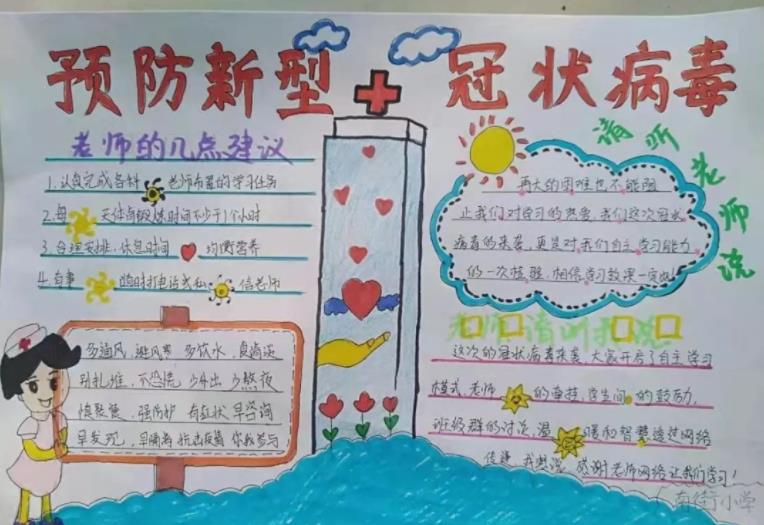 预防新型冠状病毒
老师的几点建议
1.认真完成各科老师布置的学习任务
2.每天体育锻炼时间不少于1个小时
3.合理安排休息时间 均衡营养
4.有事 随时打电话或私信老师
多通风 避风寒 多饮水 食清淡
别扎堆 不恐慌 少外出 少熬夜
慎聚餐 强防护 有症状 早咨询
早发现 早隔离 抗击疫情 你我参与
请听老师说
再大的困难也不能阻
止我们对学习的热爱,我们这次冠状
病毒的来袭,更是对我们自主学习能力
的一次检验,相信学习效果一定
老师请听我说
这次的冠状病毒来袭,大家开启了自主学习
模式,老师的牵挂,学生间的鼓励,
班级群的讨论,温暖和智慧透过网络
传递 我想说 感谢老师网络让我们学习!
南街小学